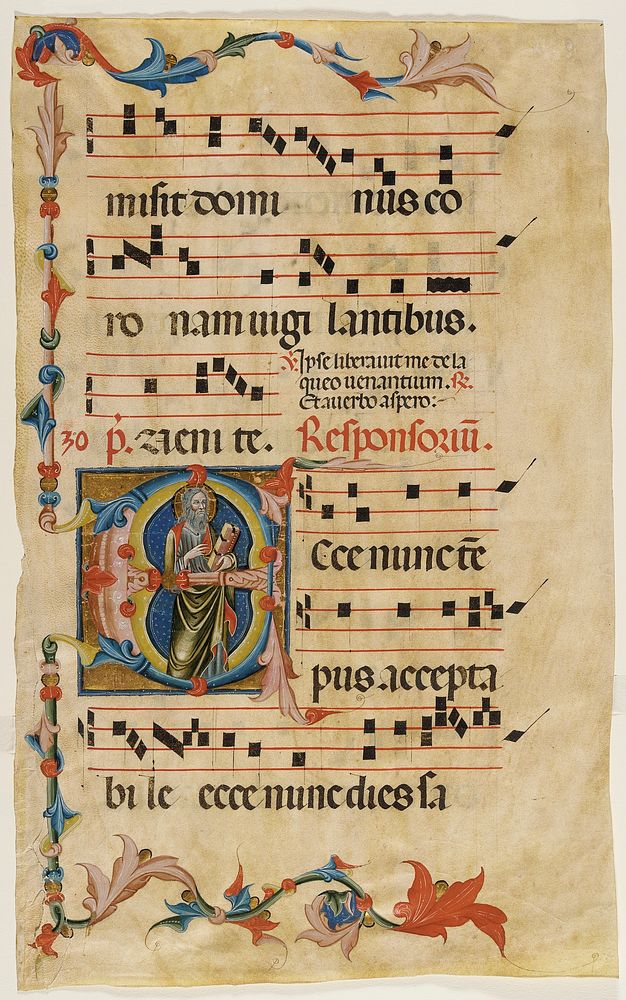 misit domi nus co
ro nam uigi lantibus.
℣. Ipse liberauit me de la
queo uenantium. ℟.
Et a uerbo aspero:-
p̄. Ueni te. Responsoriū.
Ecce nunc tē
pus accepta
bi le ecce nunc dies sa